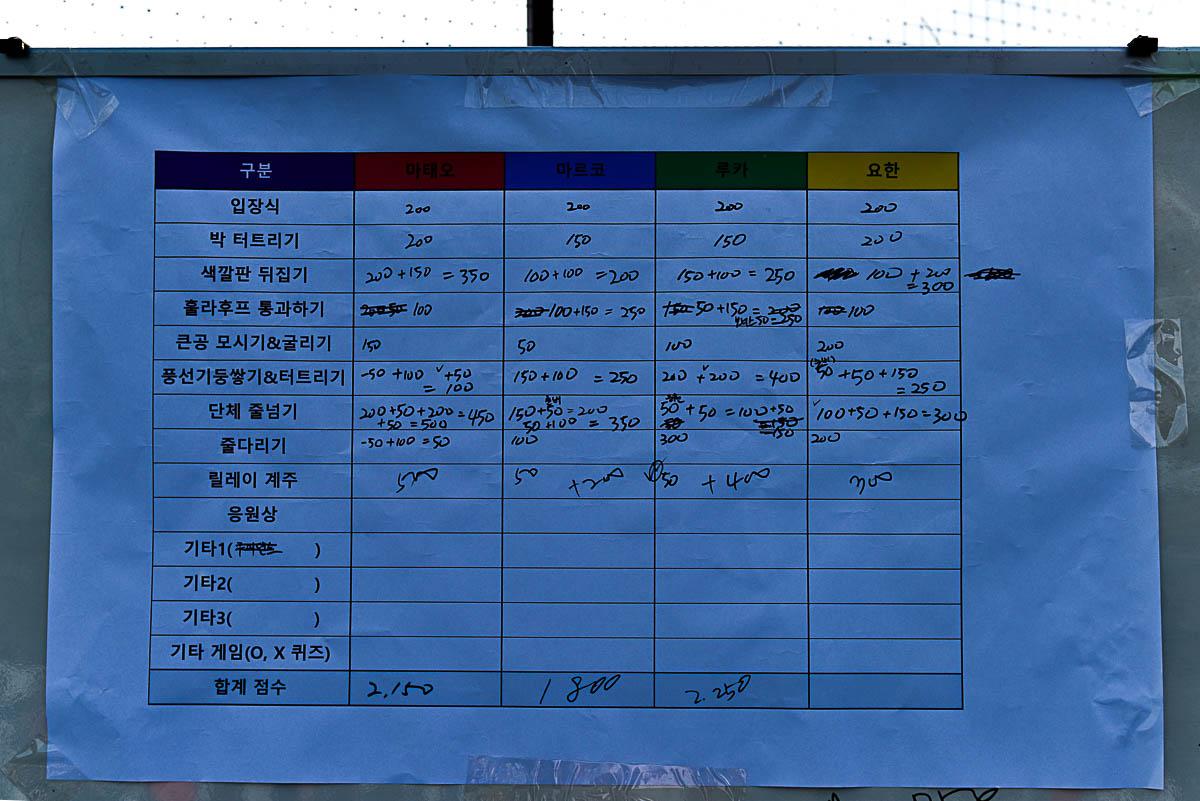 구분 마태오 마르코 루카 요한
입장식 200 200 200 200
박 터트리기 200 150 150 200
색깔판 뒤집기 200+150=350 100+100=200 150+100=250 100+200
=300
훌라후프 통과하기 100 100+150=250 50+150=200 100
50=250
큰공 모시기&굴리기 150 50 100 200
풍선기둥쌓기&터트리기 -50+100+50 150+100=250 200+200=400 50+50+150
=100 =250
단체 줄넘기 200+50+200=450 150+50=200 50+50=100+50 100+50+150=300
+50=500 50+100=350 =150
줄다리기 -50+100=50 100 300 200
릴레이 계주 500 50 +200 50 +400 300
응원상
기타1( )
기타2( )
기타3( )
기타 게임(O, X 퀴즈)
합계 점수 2,150 1800 2.250